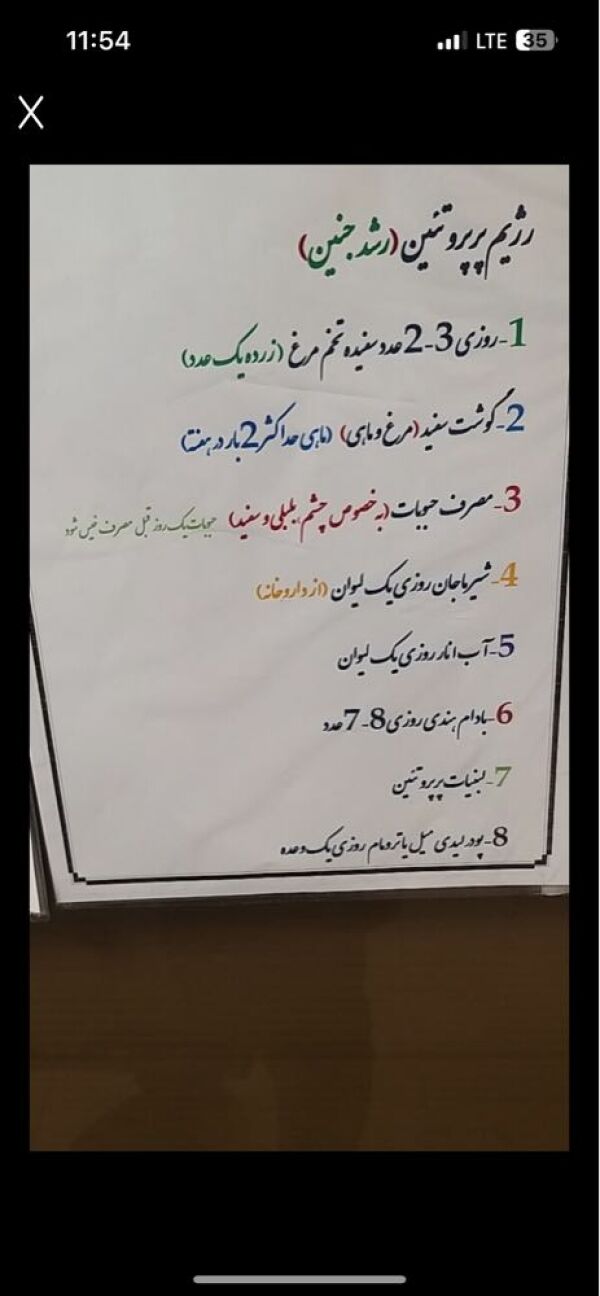 11:54
LTE 35
رژیم پرپروتئین (رشد جنین)
1-روزی 3-2 عدد سفیده تخم مرغ (زرده یک عدد)
2-گوشت سفید (مرغ و ماهی) (ماهی حداکثر 2 بار در هفته)
3-مصرف حبوبات (به خصوص چشم بلبلی و سفید) حبوبات یک روز قبل مصرف خیس شود
4-شیر ماجان روزی یک لیوان (از داروخانه)
5-آب انار روزی یک لیوان
6-بادام هندی روزی 8-7 عدد
7-لبنیات پرپروتئین
8-پودر لیدی میل یا ترومام روزی یک وعده